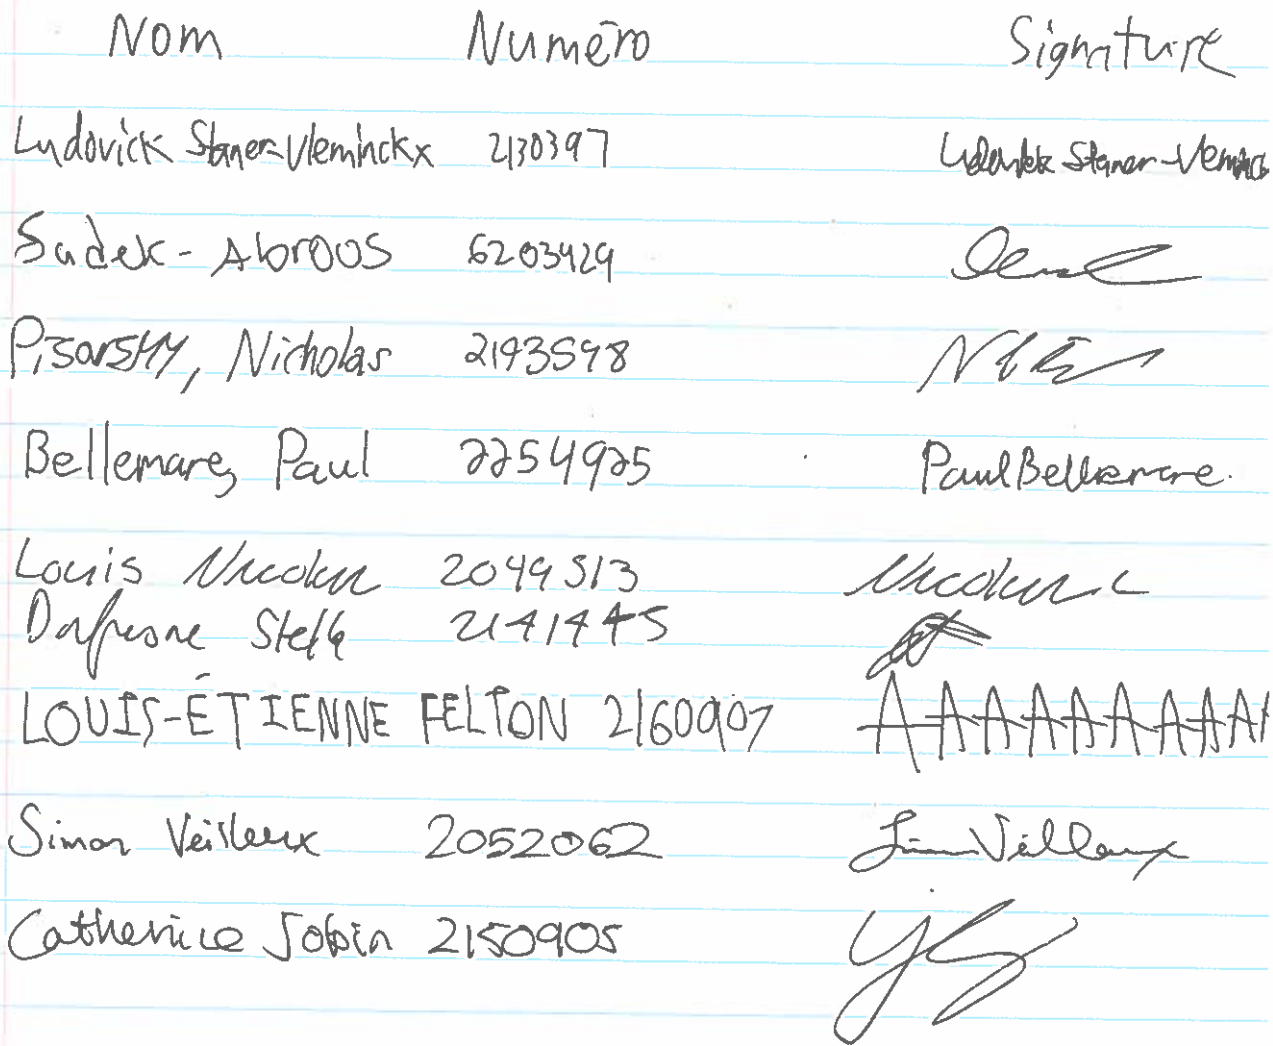 Nom Numéro Signature
Ludovick Staner-Vleminckx 2130397 Ludovick Staner-Vleminck
Sadek-Abroos 6203429
Pisarsky, Nicholas 2193598
Bellemare, Paul 2254925 Paul Bellemare
Louis Nicolas 2049513 Nicolas L
Dufresne Stella 2141445
LOUIS-ÉTIENNE FELTON 2160907 AAAAAAAAA
Simon Veilleux 2052062 Simon Veilleux
Catherine Jobin 2150905